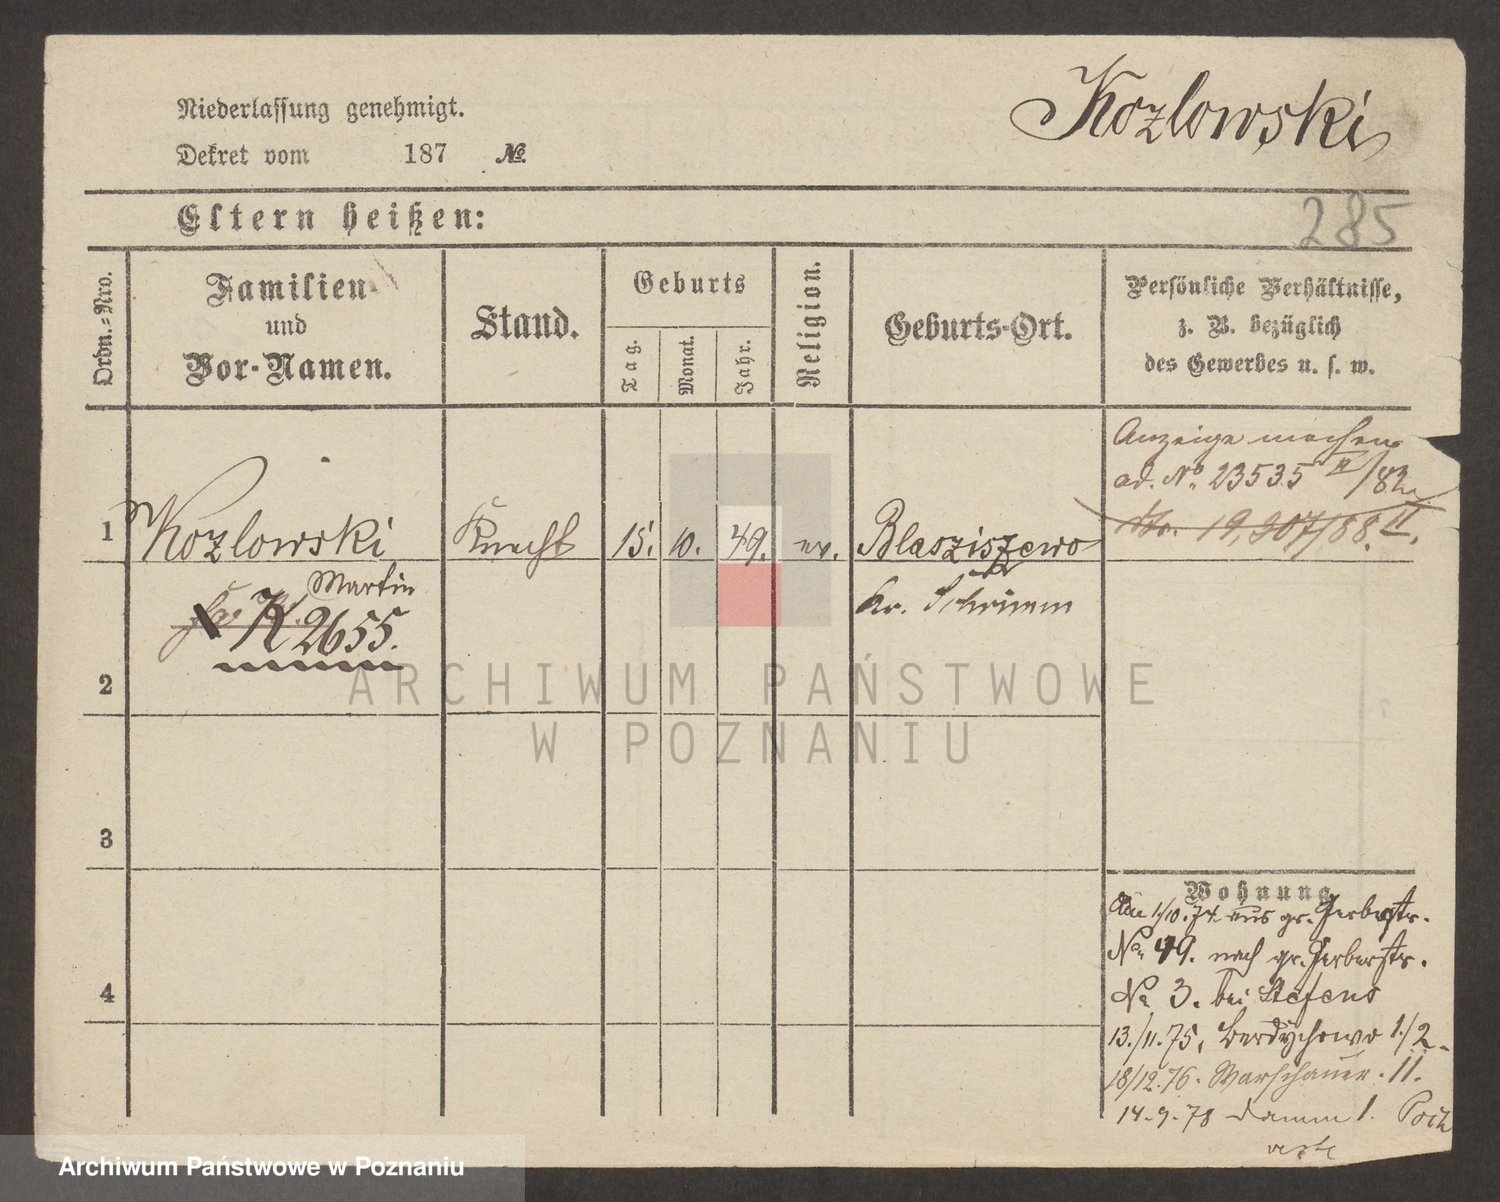 Kozlowski
Niederlassung genehmigt.
Dekret vom 187 No.
285
Eltern heißen:
Ordn.-Nro.
Familien und Vor-Namen.
Stand.
Geburts
Tag.
Monat.
Jahr.
Religion.
Geburts-Ort.
Persönliche Verhältnisse,
z. B. bezüglich
des Gewerbes u. s. w.
Anzeige machen
ad. No. 23535 /82
No. 19,907/88. II.
1 Kozlowski Knecht 15. 10. 49. ev. Blasziszewo
Martin
Kr. Schrimm
K 2655.
2
3
4
Wohnung
1/10.74 aus gr. Gerberstr.
No 49. nach gr. Gerberstr.
No 3. bei Stefens
13./11.75, Berdychowo 1/2.
18/12.76. Warschauer. 11.
14-9-78 Damm 1.
verte
ARCHIWUM PAŃSTWOWE
W POZNANIU
Archiwum Państwowe w Poznaniu